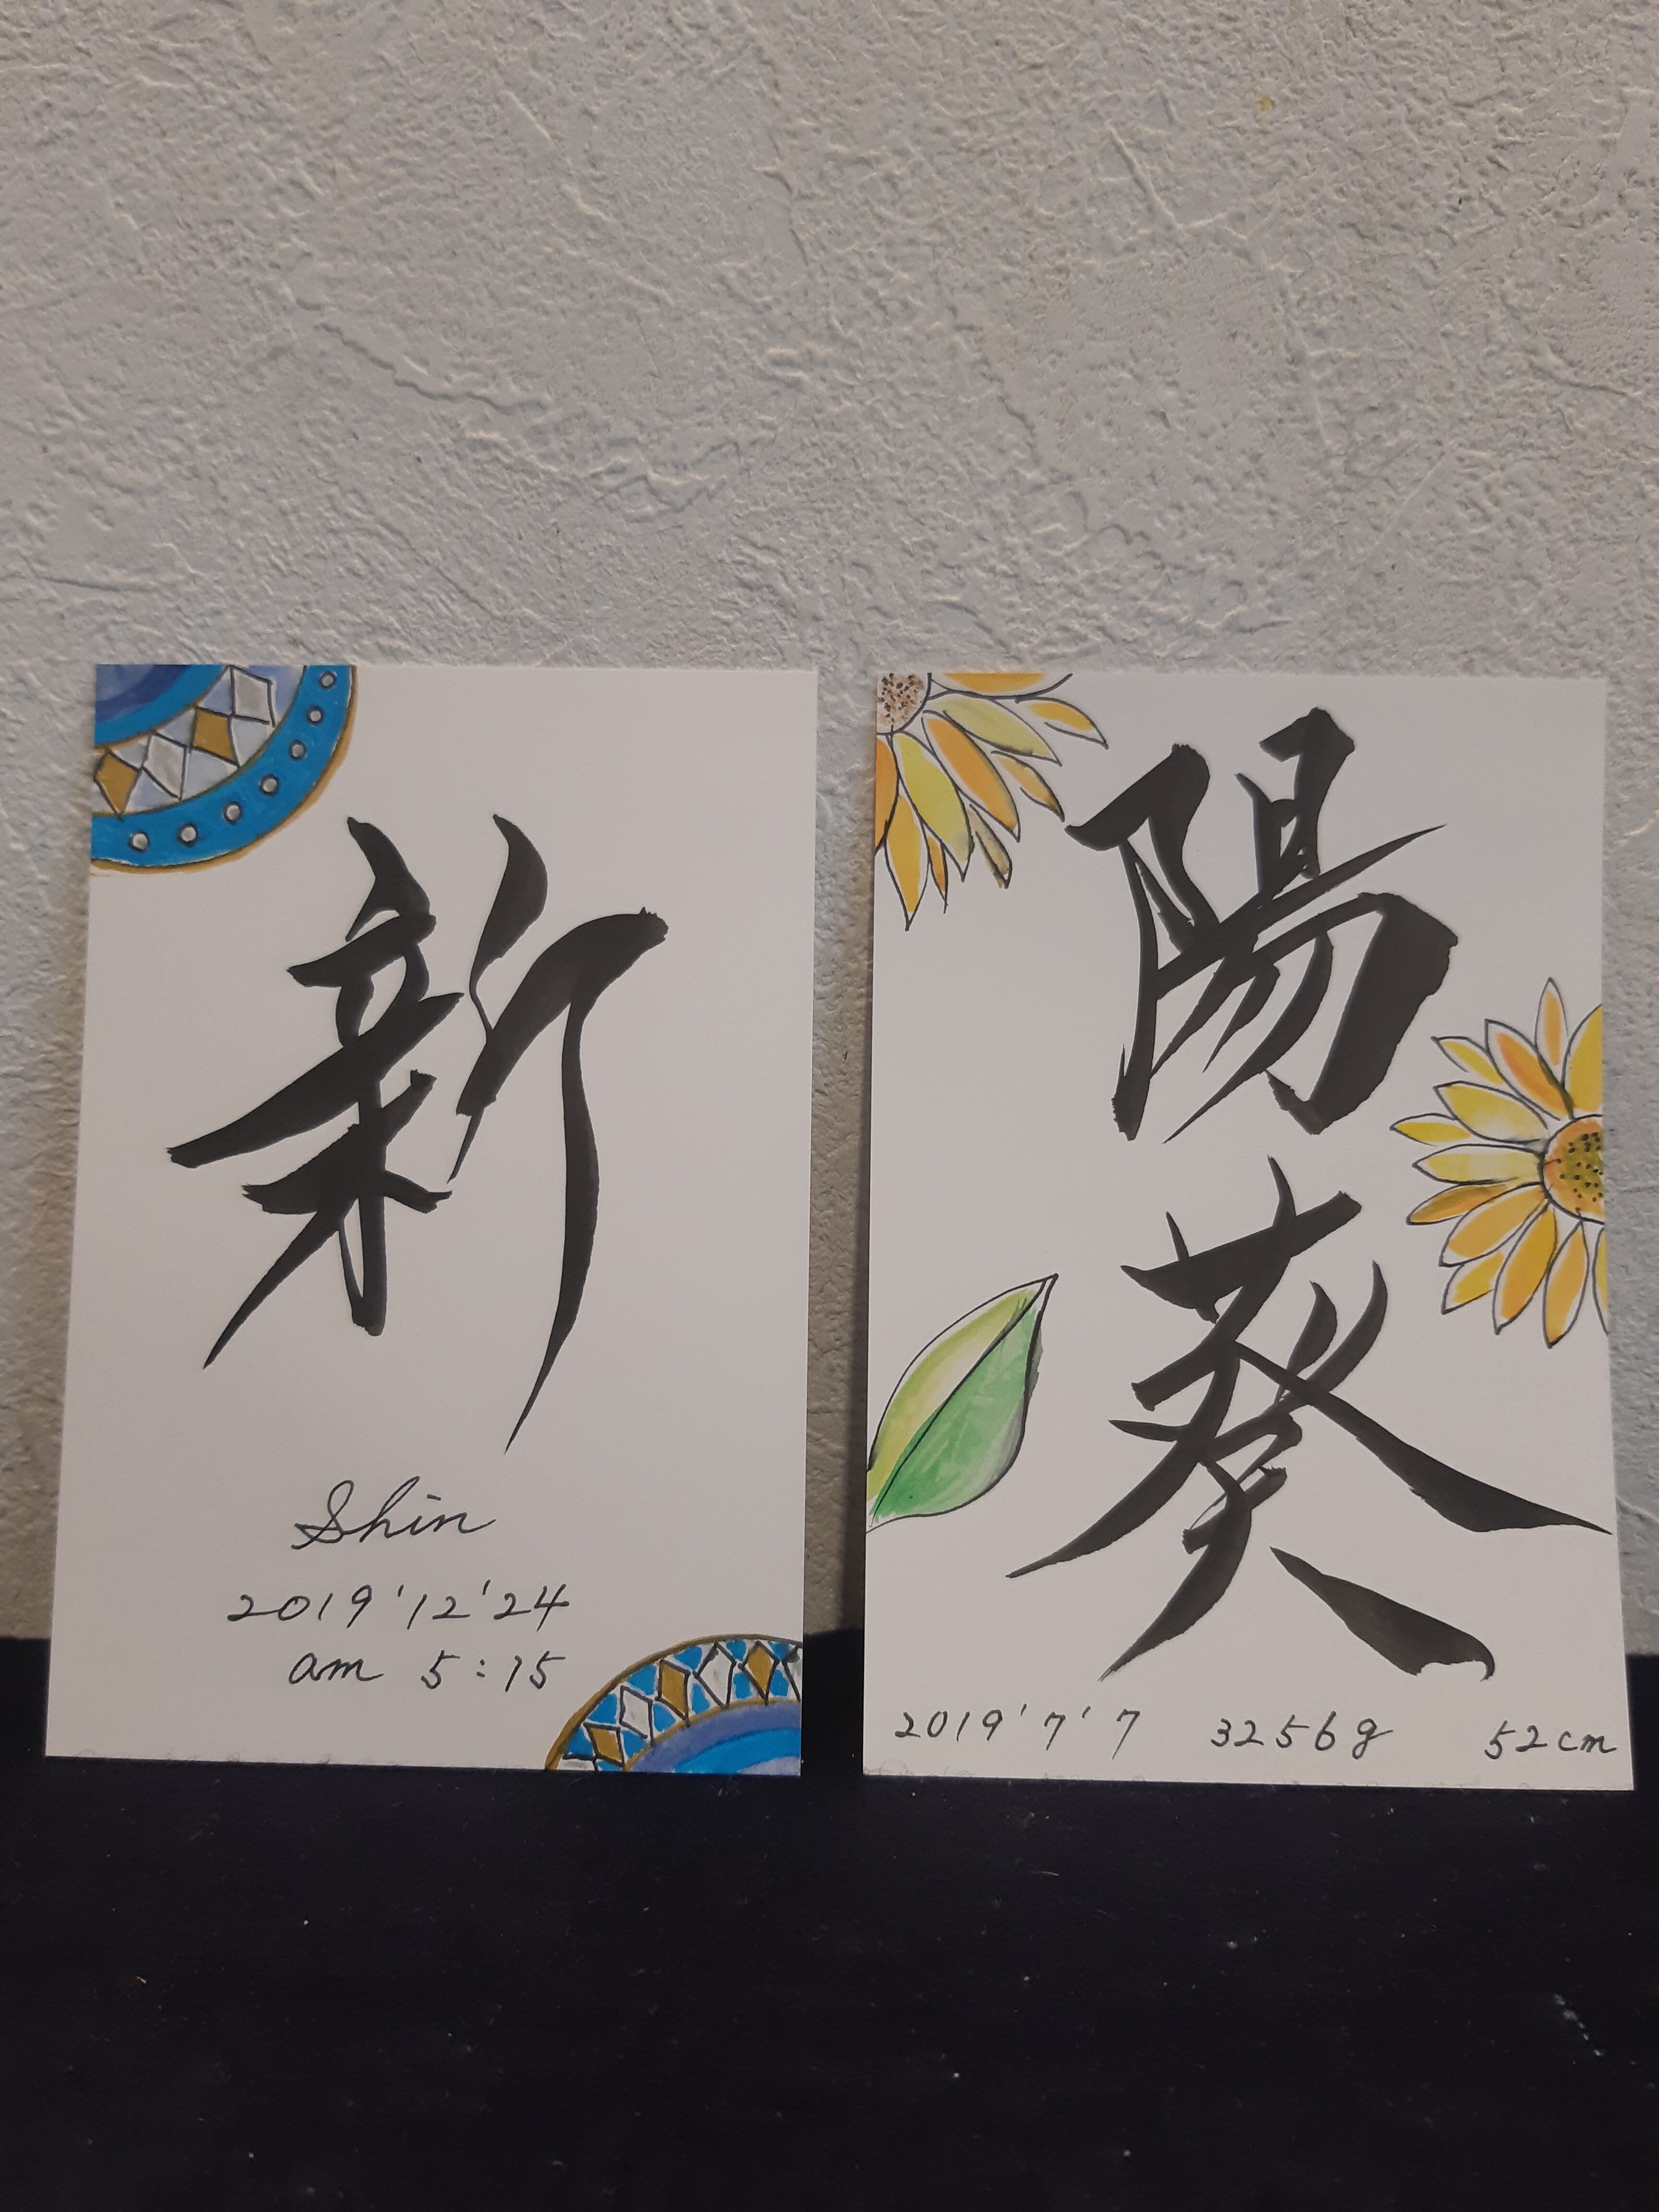 新
Shin
2019'12'24
am 5:15
陽
葵
2019'7'7 3256g 52cm